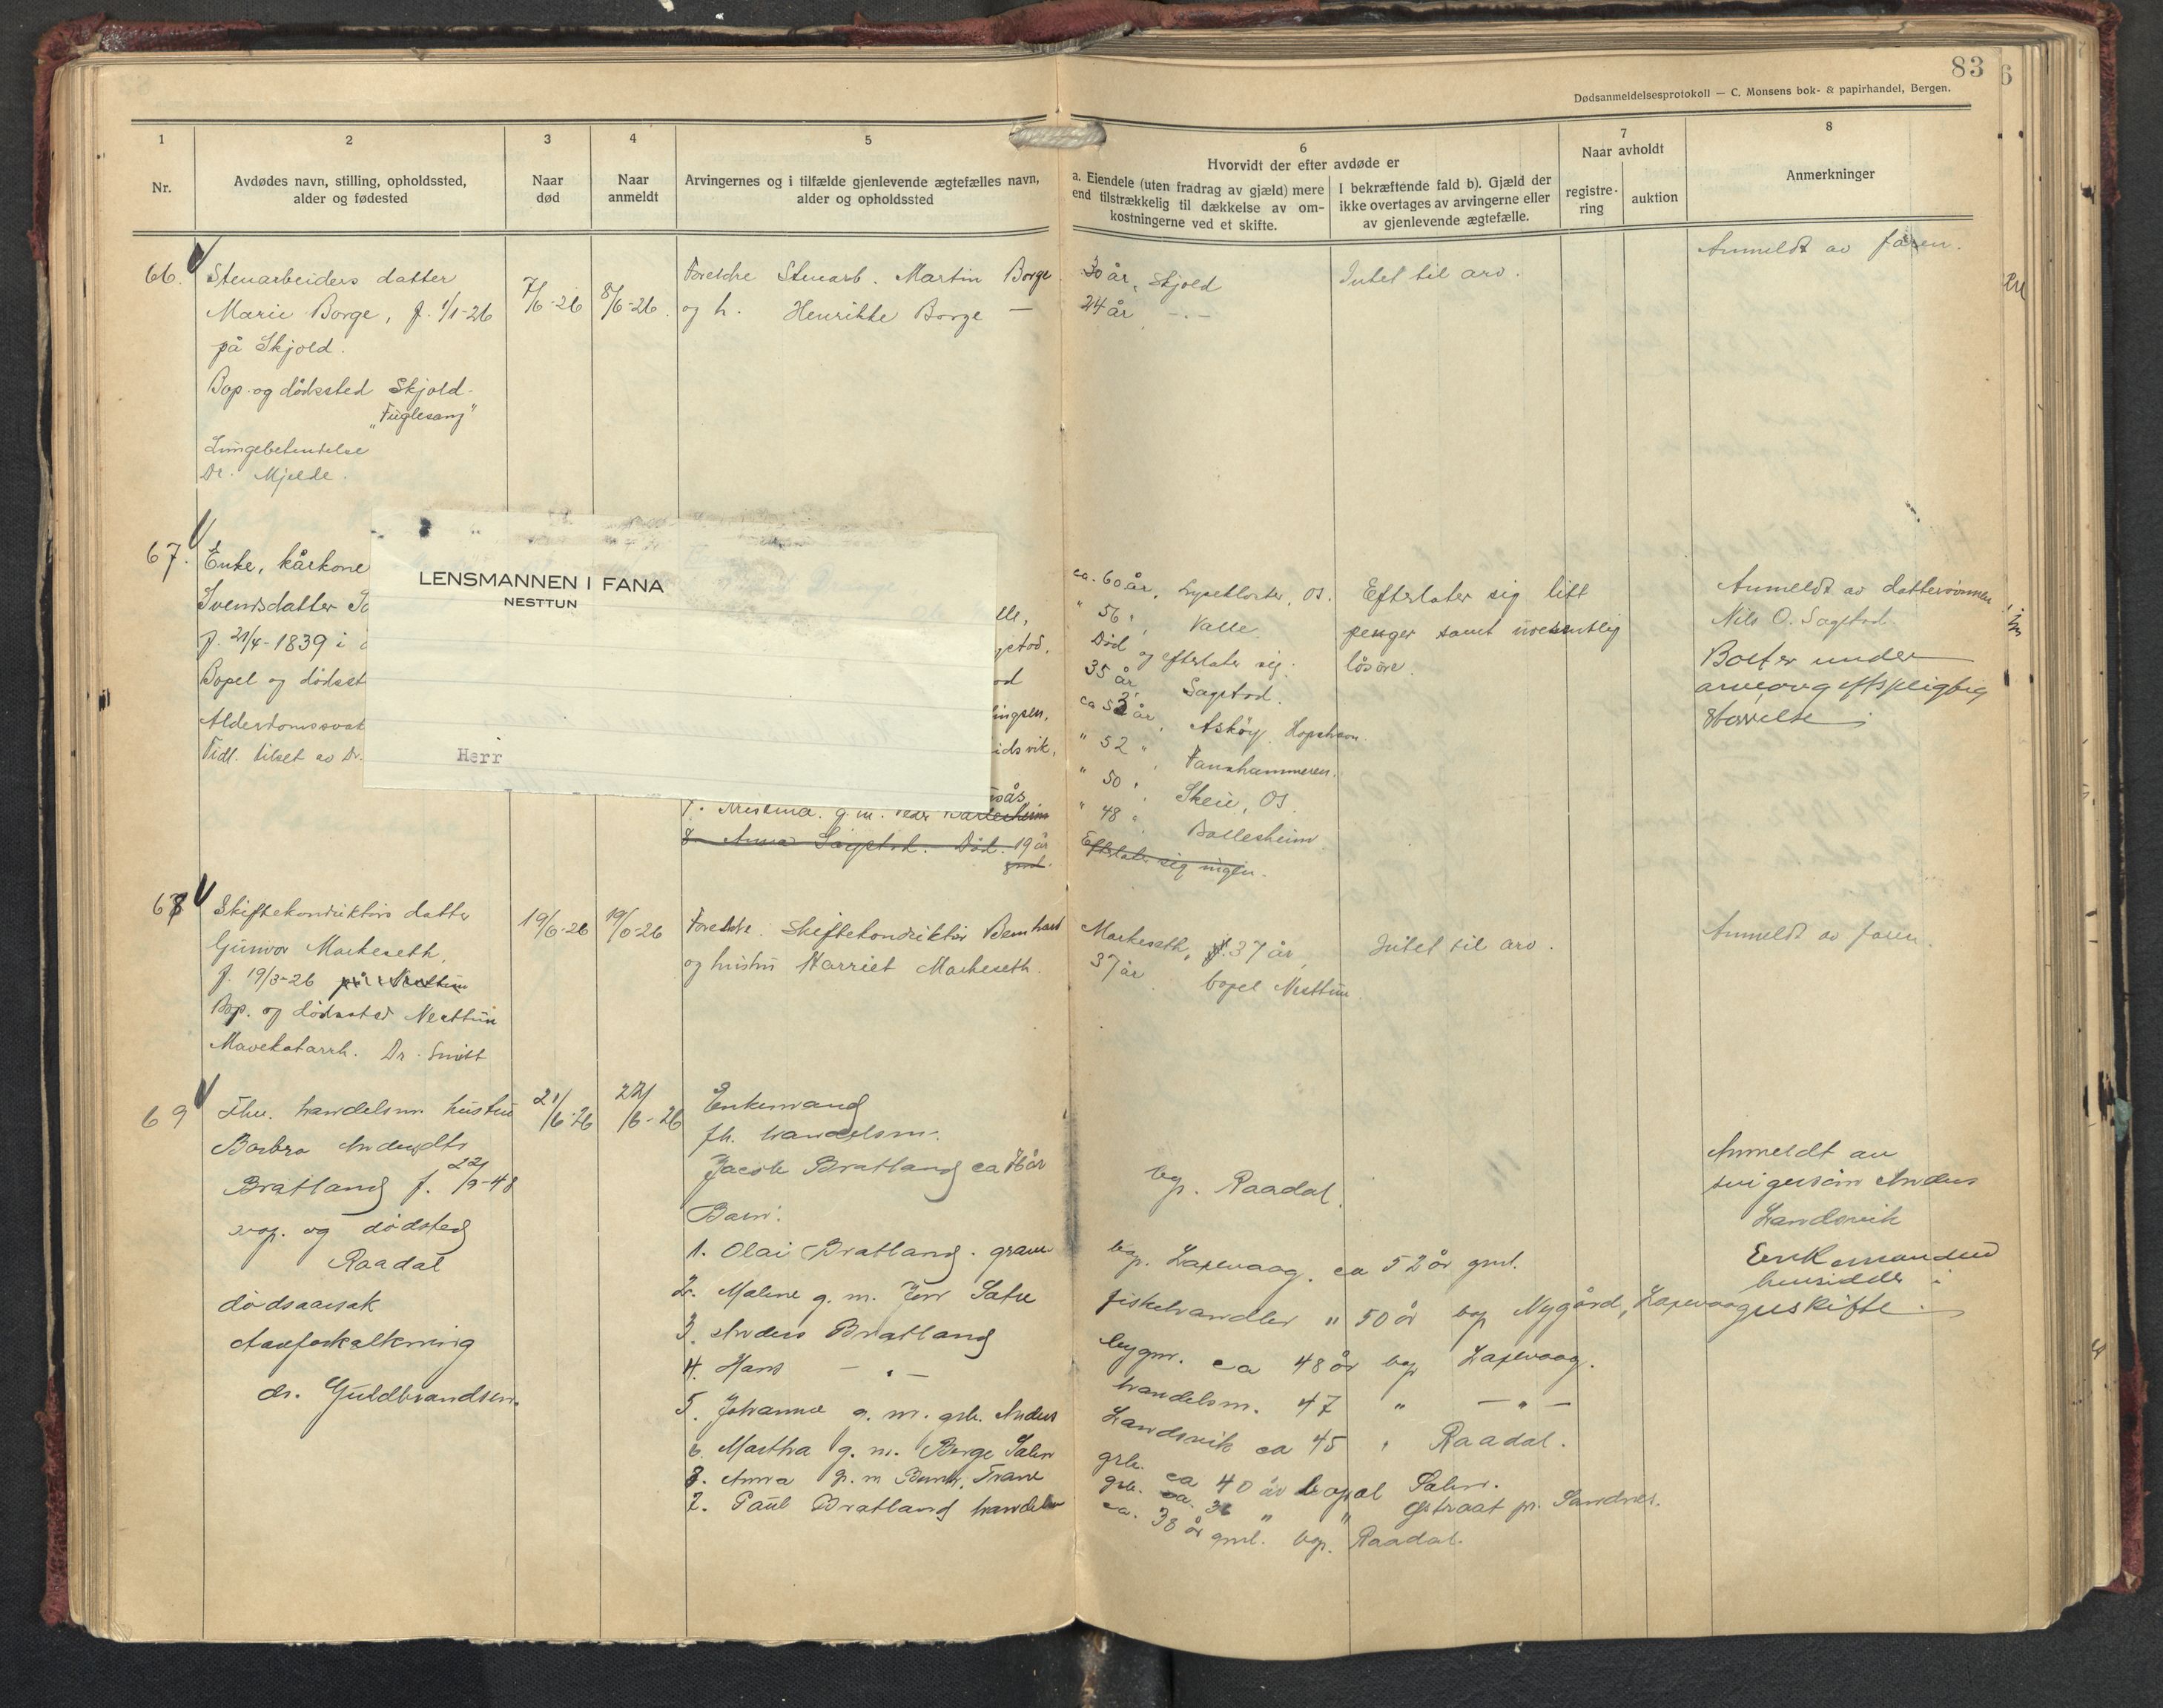 83
Dødsanmeldelsesprotokoll — C. Monsens bok- & papirhandel, Bergen.
1
Nr.
2
Avdødes navn, stilling, opholdssted,
alder og fødested
3
Naar
død
4
Naar
anmeldt
5
Arvingernes og i tilfælde gjenlevende ægtefælles navn,
alder og opholdssted
6
Hvorvidt der efter avdøde er
a. Eiendele (uten fradrag av gjæld) mere
end tilstrækkelig til dækkelse av om-
kostningerne ved et skifte.
I bekræftende fald b). Gjæld der
ikke overtages av arvingerne eller
av gjenlevende ægtefælle.
7
Naar avholdt
registre-
ring
auktion
8
Anmerkninger
66.
Stenarbeiders datter
Marie Borge, f. 1/1-26
på Skjold.
Bop. og dödssted Skjold
"Fuglesang"
Lungebetendelse
Dr. Mjelde.
7/6-26
8/6-26.
Foreldre Stenarb. Martin Borge
og h. Henrikke Borge —
30 år, Skjold
24 år -.-
Intet til arv.
Anmeldt av faren.
67.
Enke, kårkone
Svendsdatter
f. 21/4-1839 i
Bopel og dödsst
Alderdomssvak
Tidl. tilset av Dr.
LENSMANNEN I FANA
NESTTUN
Herr
lle,
idsvik,
7. Kristina. g. m. Peder Ballesheim
8. Anna Sagstad. Död. 19 år
gml.
ca. 60 år, Lyseklorter, Os.
" 56 " Valle.
Död og efterlater sig.
35 år, Sagstad.
ca 53 år, Asköy, Hopshavn.
" 52 " Fanahammeren.
" 50 " Skeie, Os.
" 48 " Ballesheim.
Efterlater sig ingen.
Efterlater sig litt
penger samt uvesentlig
lösöre.
Anmeldt av dattersönnen
Nils O. Sagstad.
Boet er under
arveavgiftspligtig
størrelse
68
Skiftekonduktörs datter
Gunvor Markeseth,
f. 19/3-26 på Nesttun
Bop. og dödssted Nesttun
Mavekatarrh. Dr. Smitt
19/6-26
19/6-26
Foreldre: Skiftekonduktör Bernhard
og hustru Harriet Markeseth.
Markeseth, 37 år,
37 år bopel Nesttun.
Intet til arv.
Anmeldt av faren.
69
Fhv. handelsm. hustru
Barbra Andersdtr
Bratland f. 22/9-48
bop. og dödsted
Raadal
dödsaarsak
Aareforkalkning
dr. Guldbrandsen.
21/6-26
22/6-26
Enkemand
fh. handelsm.
Jacob Bratland ca 76 år
Barn:
1. Olai Bratland. graver
2. Malene g. m. Jon Satre
3. Anders Bratland
4. Hans — " —
5. Johanna g. m. grb. Anders
6. Martha g. m. Børge Salen
8. Anna g. m Trane
7. Paul Bratland handelsm
bop. Raadal.
bop. Laxevaag. ca 52 år gml.
fiskehandler " 50 år bop Nygård, Laxevaag
bygm. ca 48 år bop Laxevaag.
handelsm. 47 " — " —
Landsvik ca 45 " Raadal.
grb. ca 40 år bopel Salen.
grb. ca. 36 " " pr. Sandnes.
ca. 38 år gml. bop. Raadal.
Anmeldt av
svigersön Anders
Landsvik
Enkemanden
hensidder i
uskifte.